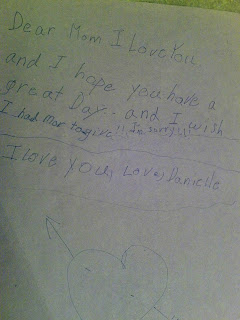 Dear Mom I Love You
and I hope you have a
great Day.. and I wish
I had mor to give!! Im sorry!!
I Love you, Love, Danielle